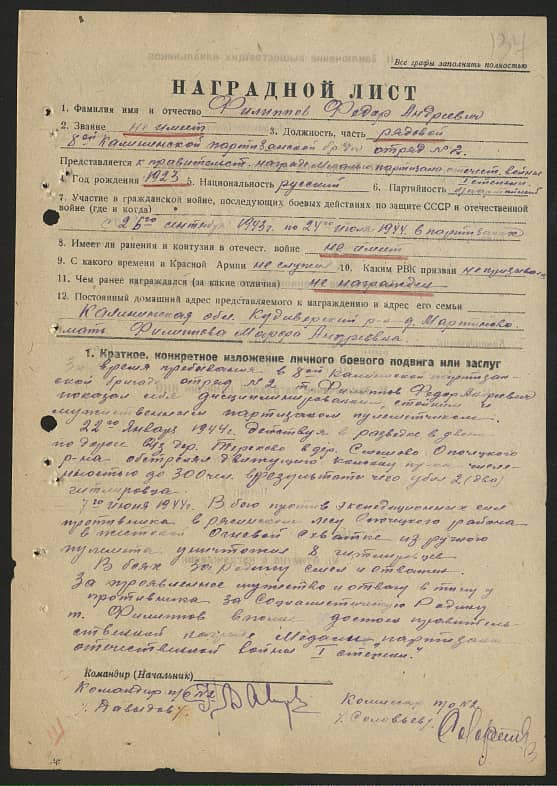 137
Все графы заполнять полностью
НАГРАДНОЙ ЛИСТ
1. Фамилия имя и отчество Филиппов Федор Андреевич
2. Звание не имеет 3. Должность, часть рядовой
8ой Калининской партизанской бр-ды отряд №2.
Представляется к правительст. награде Медаль партизана отечест. войны
I степени.
4. Год рождения 1923 5. Национальность русский 6. Партийность беспартийный
7. Участие в гражданской войне, последующих боевых действиях по защите СССР и отечественной
войне (где и когда)
с 25го сентября 1943г. по 24ое июля 1944г. в партизанах
8. Имеет ли ранения и контузии в отечест. войне не имеет
9. С какого времени в Красной Армии не служил 10. Каким РВК призван не призывался
11. Чем ранее награждался (за какие отличия) не награжден
12. Постоянный домашний адрес представляемого к награждению и адрес его семьи
Калининская обл. Кудеверский р-н д. Мартиново
мать Филиппова Марфа Андреевна.
1. Краткое, конкретное изложение личного боевого подвига или заслуг
За время пребывания в 8ой Калининской партизан-
ской бригаде отряд №2 т. Филиппов Федор Андреевич
показал себя дисциплинированным, стойким и
мужественным партизаном пулеметчиком.
22го Января 1944г. действуя в разведке в двоем
по дороге из дер. Терехово в дер. Опочецкого
р-на обстрелял движущую колонну пр-ка числе-
нностью до 300 чел. в результате чего убил 2 (два)
гитлеровца.
7го июня 1944г. В бою против экспедиционных сил
противника в лесу Опочецкого района
в жестокой огневой схватке из ручного
пулемета уничтожил 8 гитлеровцев
В боях за родину смел и отважен.
За проявленное мужество и отвагу в тылу у
противника за Социалистическую Родину
т. Филиппов вполне достоин правитель-
ственной награды Медали "партизана
отечественной войны I степени."
Командир (Начальник)
Командир п/о №2
/Давыдов/
Комиссар п/о №2
/Соловьев/